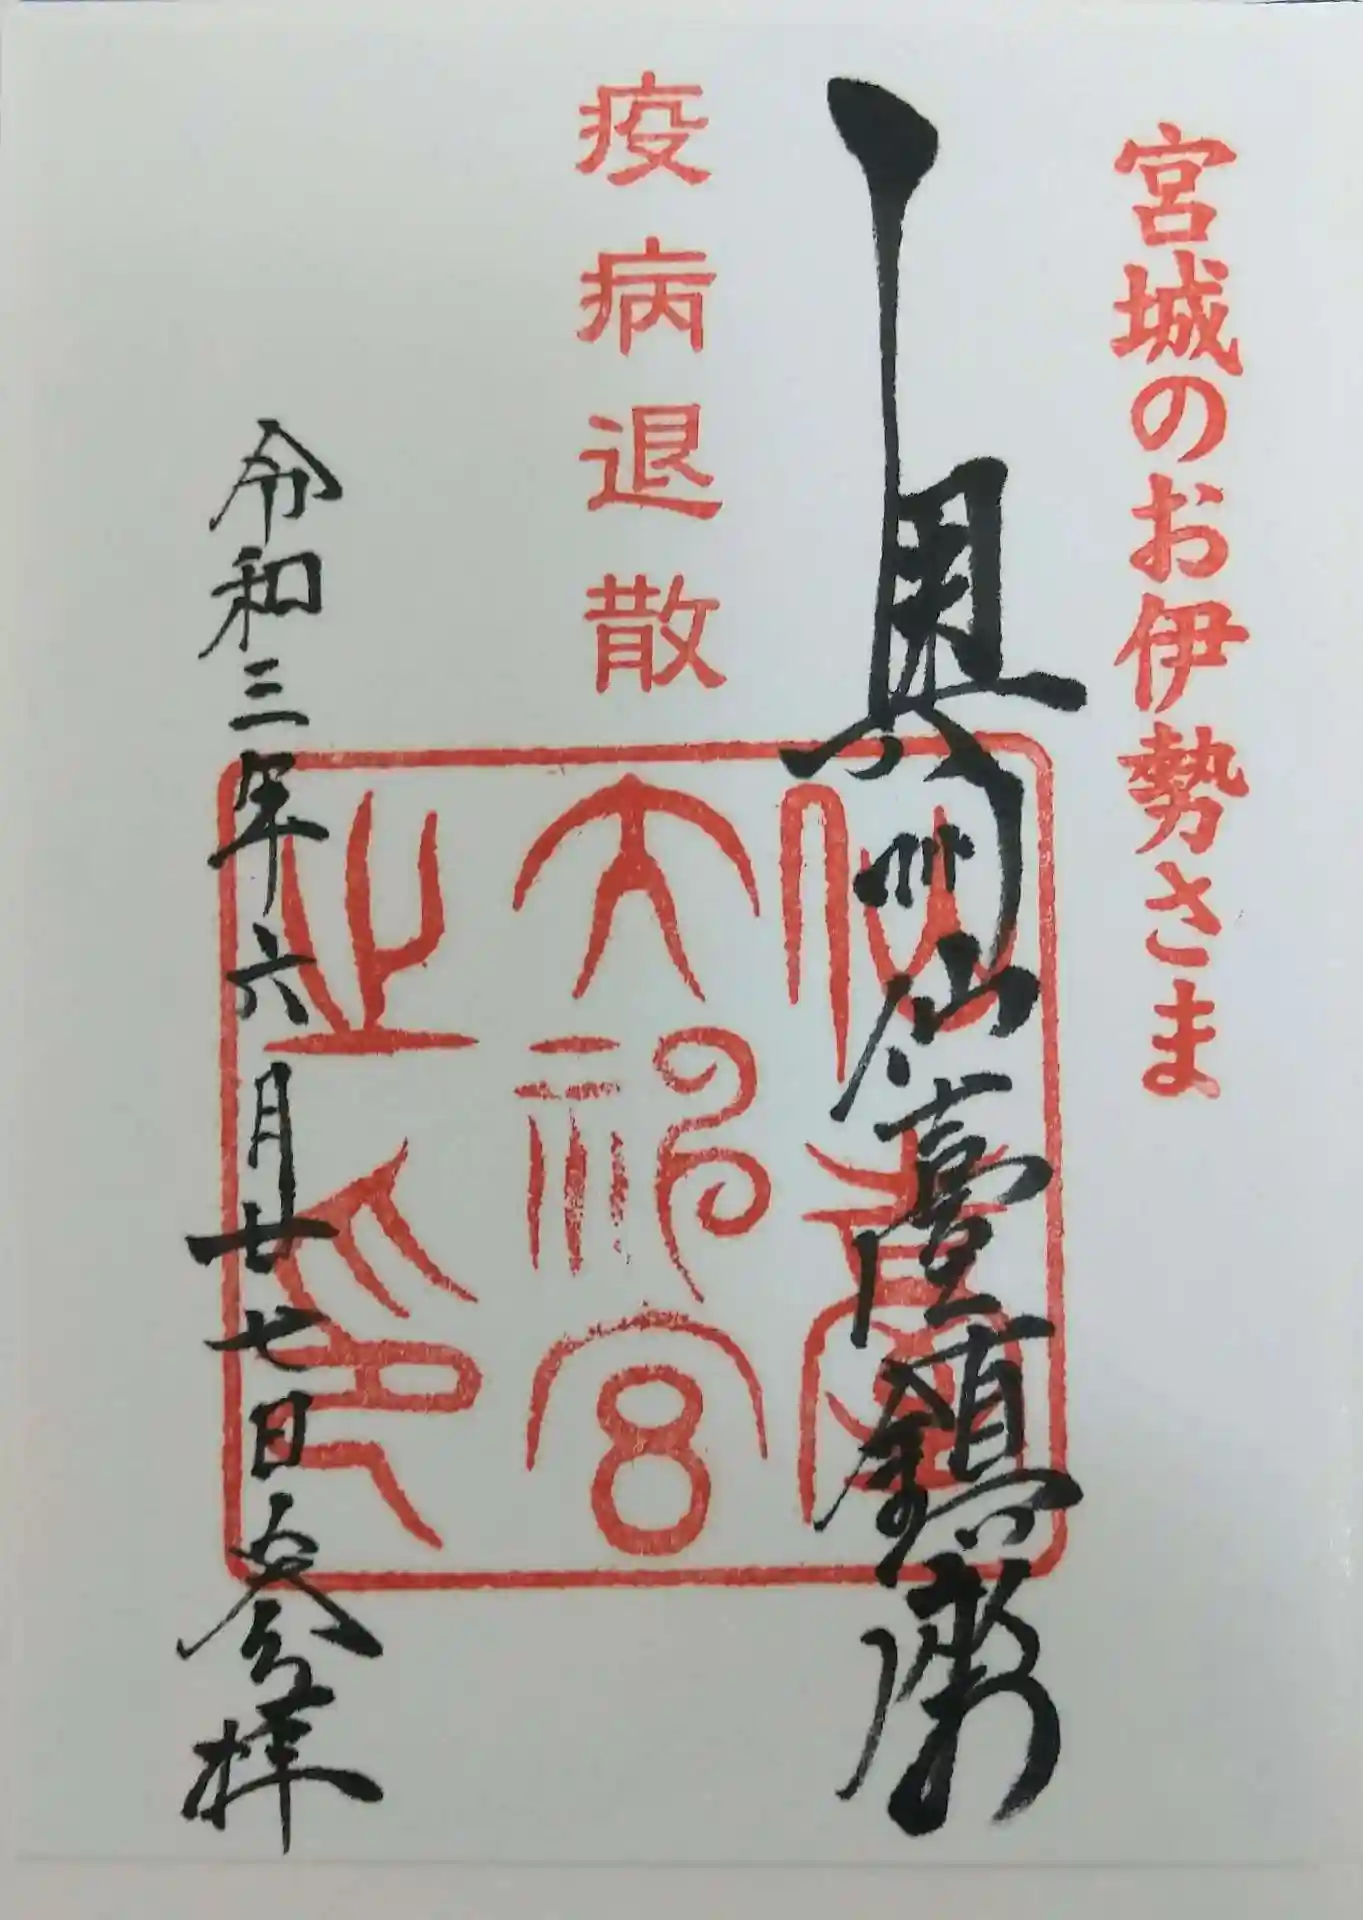 宮城のお伊勢さま
奥州仙臺鎮衛
疫病退散
仙臺大神宮之印
令和三年六月廿七日参拝